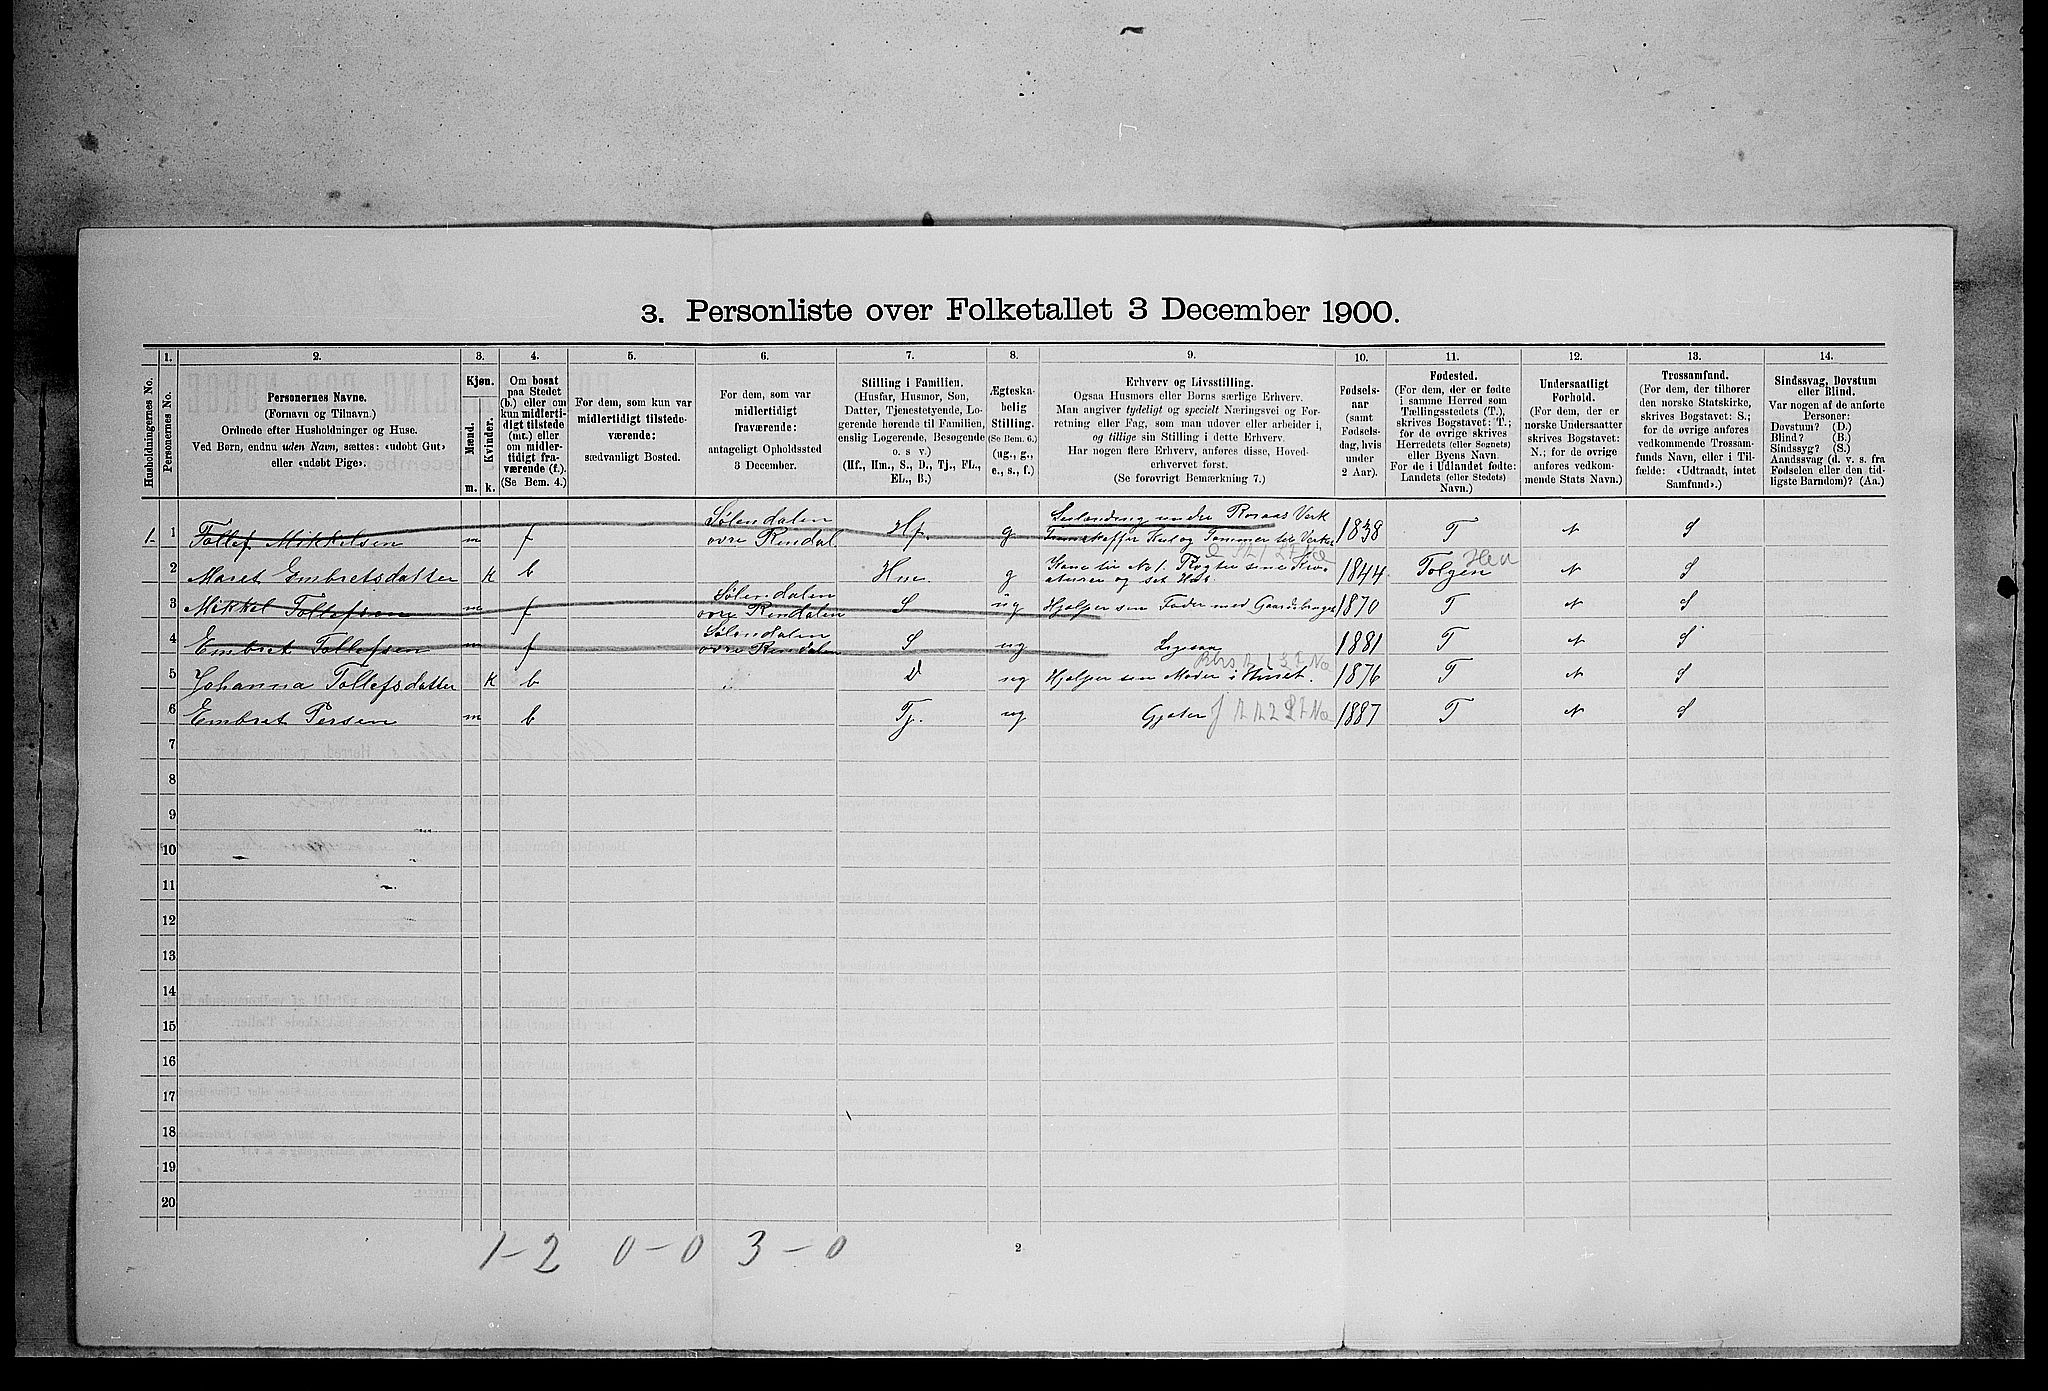 3. Personliste over Folketallet 3 December 1900.
Husholdningernes No.
1.
Personernes No.
2.
Personernes Navne.
(Fornavn og Tilnavn.)
Ordnede efter Husholdninger og Huse.
Ved Børn, endnu uden Navn, sættes: «udøbt Gut»
eller «udøbt Pige».
3.
Kjøn.
Mænd.
Kvinder.
m. k.
4.
Om bosat
paa Stedet
(b.) eller om
kun midlerti-
digt tilstede
(mt.) eller
om midler-
tidigt fra-
værende (f.).
(Se Bem. 4.)
5.
For dem, som kun var
midlertidigt tilstede-
værende:
sædvanligt Bosted.
6.
For dem, som var
midlertidigt
fraværende:
antageligt Opholdssted
3 December.
7.
Stilling i Familien.
(Husfar, Husmor, Søn,
Datter, Tjenestetyende, Lo-
gerende hørende til Familien,
enslig Logerende, Besøgende
o. s v.)
(Hf., Hm., S., D., Tj., FL.,
EL., B.)
8.
Ægteska-
belig
Stilling.
(Se Bem. 6.)
(ug., g.,
e., s., f.)
9.
Erhverv og Livsstilling.
Ogsaa Husmors eller Børns særlige Erhverv.
Man angiver tydeligt og specielt Næringsvei og For-
retning eller Fag, som man udøver eller arbeider i,
og tillige sin Stilling i dette Erhverv.
Har nogen flere Erhverv, anføres disse, Hoved-
erhvervet først.
(Se forøvrigt Bemærkning 7.)
10.
Fødsels-
aar
(samt
Fødsels-
dag, hvis
under
2 Aar).
11.
Fødested.
(For dem, der er fødte
i samme Herred som
Tællingsstedets (T.),
skrives Bogstavet: T.;
for de øvrige skrives
Herredets (eller Sognets)
eller Byens Navn.
For de i Udlandet fødte:
Landets (eller Stedets)
Navn.)
12.
Undersaatligt
Forhold.
(For dem, der er
norske Undersaatter
skrives Bogstavet:
N.; for de øvrige
anføres vedkom-
mende Stats Navn.)
13.
Trossamfund.
(For dem, der tilhører
den norske Statskirke,
skrives Bogstavet: S.;
for de øvrige anføres
vedkommende Trossam-
funds Navn, eller i Til-
fælde: «Udtraadt, intet
Samfund».)
14.
Sindssvag, Døvstum
eller Blind.
Var nogen af de anførte
Personer:
Døvstum? (D.)
Blind? (B.)
Sindssyg? (S.)
Aandssvag (d. v. s. fra
Fødselen eller den tid-
ligste Barndom)? (Aa.)
1. 1 Tollef Mikkelsen m f Sølendalen øvre Rendal Hf. g under Røraas Verk Kul og Tømmer til Verket 1838 T N S
2 Maret Embretsdatter k b Hm g Kone til No 1. Røgter sine Kreaturer og set Hus 1844 Tolgen Hed N S
3 Mikkel Tollefsen m f Sølendalen øvre Rendalen S ug Hjælper sin Fader med Gaardsbruget 1870 T N S
4 Embret Tollefsen m f Sølendalen øvre Rendalen S ug Ligesaa 1881 T N S
5 Johanna Tollefsdatter k b D ug Hjælper sin Moder i Huset. 1876 T N S
6 Embret Persen m b Tj. ug Gjæter 1887 T N S
7
8
9
10
11
12
13
14
15
16
17
18
19
20
1-2 0-0 3-0
2